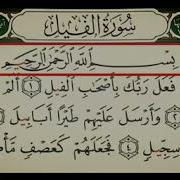 سُورَةُ الْفِيلِ
بِسْمِ ٱللَّهِ ٱلرَّحْمَٰنِ ٱلرَّحِيمِ
فَعَلَ رَبُّكَ بِأَصْحَٰبِ ٱلْفِيلِ ١ أَلَمْ
وَأَرْسَلَ عَلَيْهِمْ طَيْرًا أَبَابِيلَ ٣
سِجِّيلٍ ٤ فَجَعَلَهُمْ كَعَصْفٍ مَّأْ